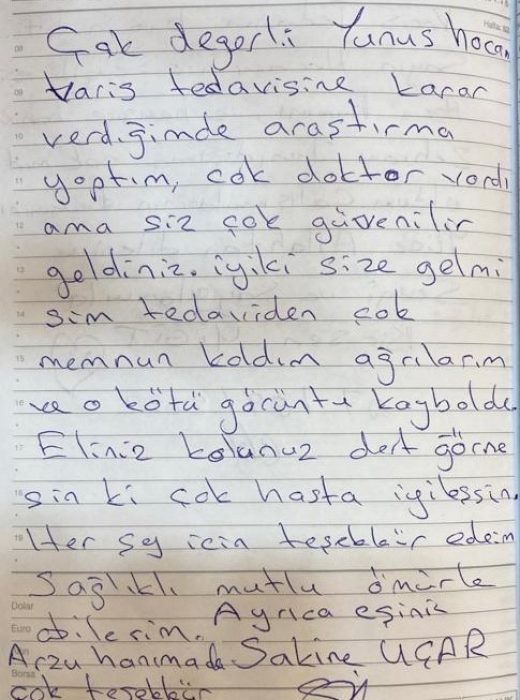 Çok değerli Yunus hocam
varis tedavisine karar
verdiğimde araştırma
yaptım, çok doktor vardı
ama siz çok güvenilir
geldiniz. iyiki size gelmi
şim tedaviden çok
memnun kaldım ağrılarım
ve o kötü görüntü kayboldu.
Eliniz kolunuz dert görme
sin ki çok hasta iyileşsin.
Her şey için teşekkür ederim
Sağlıklı mutlu ömürle
dilerim. Ayrıca eşiniz
Arzu hanımada Sakine UÇAR
çok teşekkür